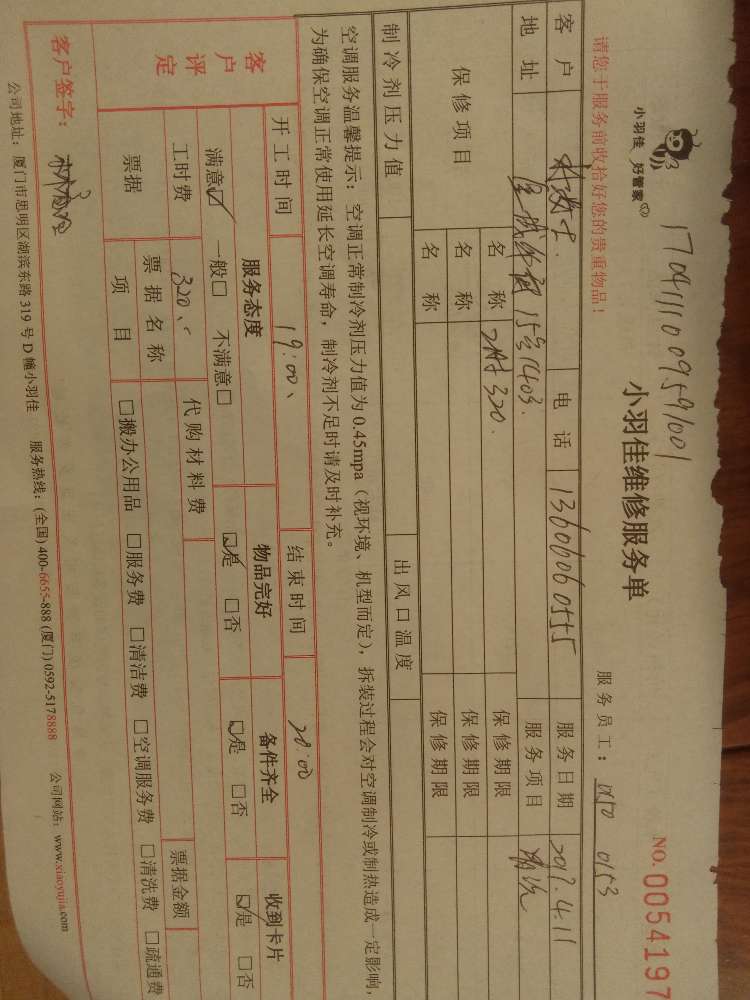 小羽佳 好管家
1704111009591001
小羽佳维修服务单
NO. 0054197
请您于服务前收拾好您的贵重物品！
服务员工： 0153
客户 电话 13606060555 服务日期 2017.4.11
地址 15号1403. 服务项目 清洗
保修项目 名称 320. 保修期限
名称 保修期限
名称 保修期限
制冷剂压力值 出风口温度
空调服务温馨提示：空调正常制冷剂压力值为 0.45mpa（视环境、机型而定），拆装过程会对空调制冷或制热造成一定影响，
为确保空调正常使用延长空调寿命，制冷剂不足时请及时补充。
开工时间 19:00、 结束时间 20:00
客户评定 服务态度 物品完好 备件齐全 收到卡片
满意☑ 一般□ 不满意□ ☑是 □否 ☑是 □否 ☑是 □否
工时费 320、 代购材料费 票据金额
票据 票据名称
项目 □搬办公用品 □服务费 □清洁费 □空调服务费 □清洗费 □疏通费
客户签字：
公司地址：厦门市思明区湖滨东路 319 号 D 幢小羽佳 服务热线：(全国) 400-6655-888 (厦门) 0592-5178888 公司网站：www.xiaoyujia.com